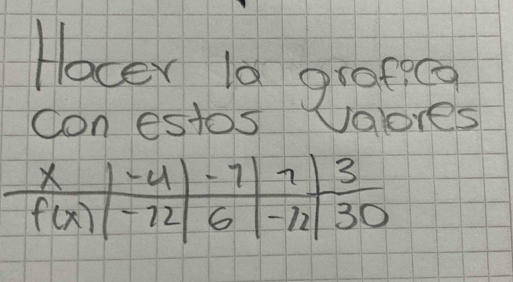 Hacer la grafica
con estos valores
x | -4 | -1 | 2 | 3
f(x) | -12 | 6 | -12 | 30